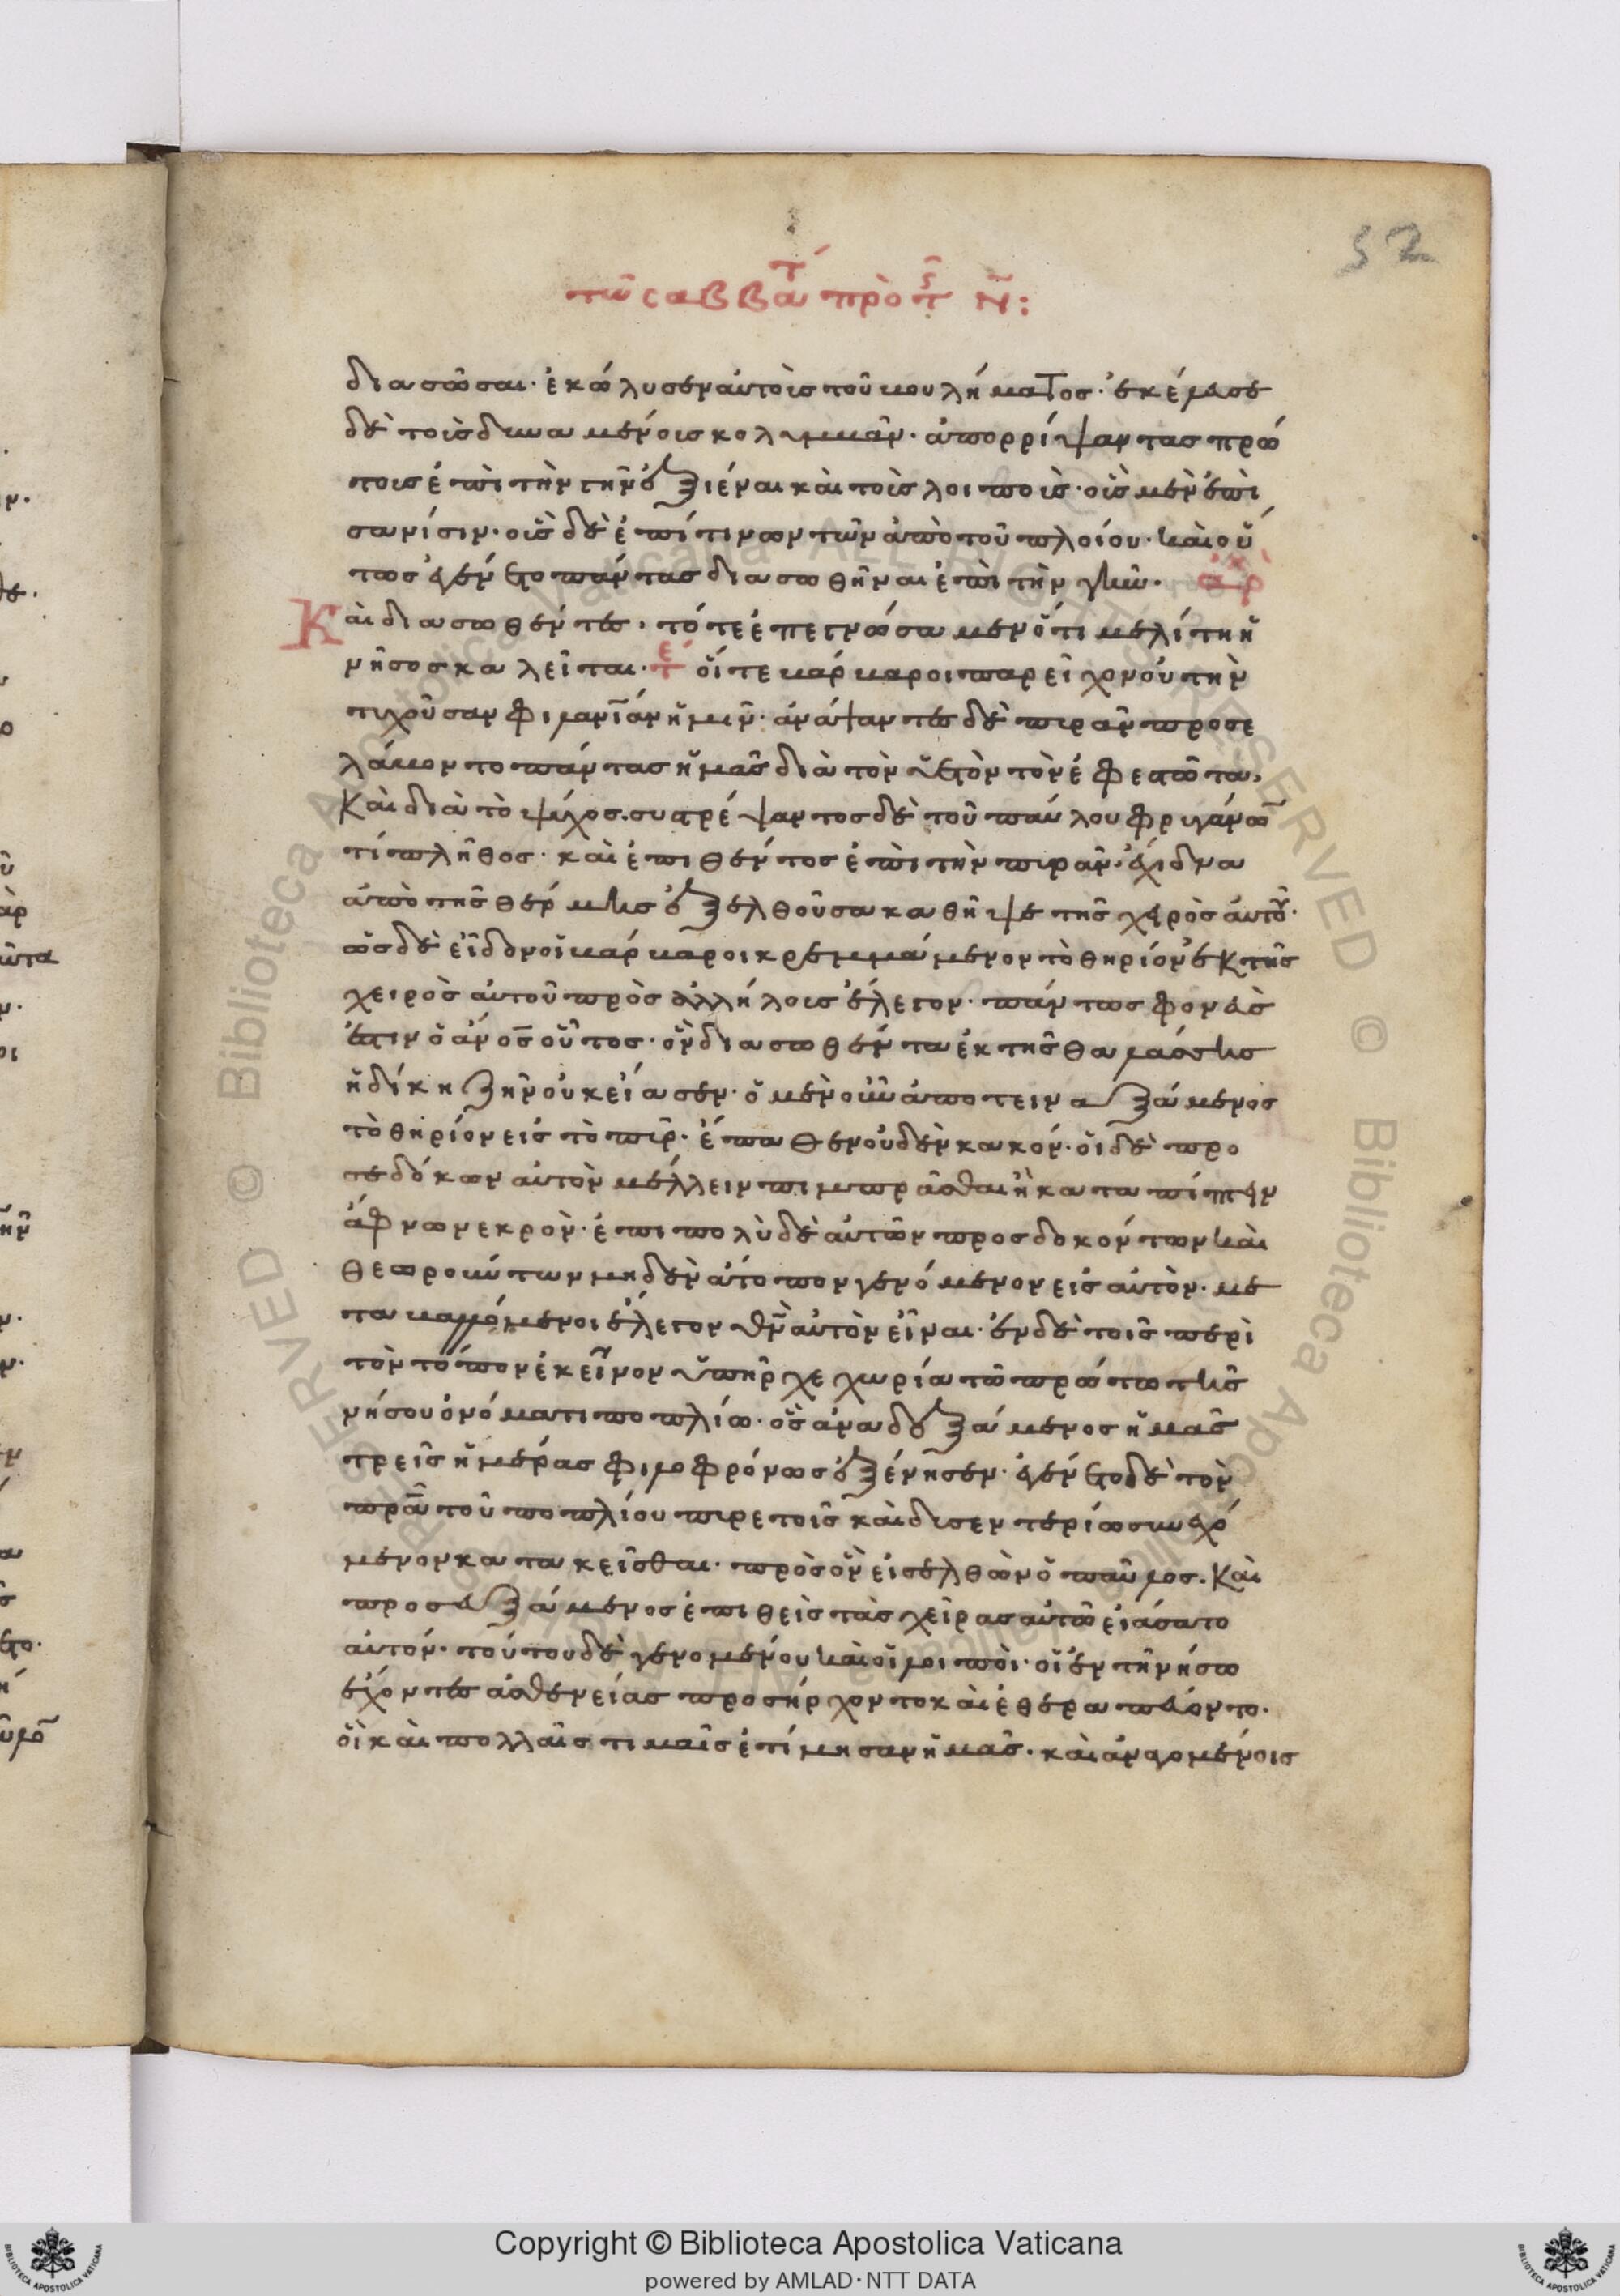 52
τῶ σαββάτ πρὸ τ ς Ν:
διασῶσαι· ἐκώλυσεν αὐτοὺς τοῦ βουλήματος· ἐκέλευσε
δὲ τοὺς δυναμένους κολυμβᾶν· ἀπορρίψαντας πρώ
τους ἐπὶ τὴν γῆν ἐξιέναι καὶ τοὺς λοιποὺς· οὓς μὲν ἐπὶ
σανίσιν· οὓς δὲ ἐπί τινων τῶν ἀπὸ τοῦ πλοίου· καὶ οὕ
τως ἐγένετο πάντας διασωθῆναι ἐπὶ τὴν γῆν· ἀρχ
Καὶ διασωθέντες, τότε ἐπεγνώσαμεν ὅτι μελίτη ἡ
νῆσος καλεῖται· τε οἵ τε βάρβαροι παρεῖχον οὐ τὴν
τυχοῦσαν φιλανΐαν ἡμῖν· ἀνάψαντες δὲ πυρὰν προσε
λάβοντο πάντας ἡμᾶς διὰ τὸν ὑετὸν τὸν ἐφεστῶτα,
καὶ διὰ τὸ ψύχος. συστρέψαντος δὲ τοῦ παύλου φρυγάνω
τί πλῆθος· καὶ ἐπιθέντος ἐπὶ τὴν πυρὰν· ἔχιδνα
ἀπὸ τῆς θέρμης ἐξελθοῦσα καθῆψε τῆς χειρὸς αὐτοῦ·
ὡς δὲ εἶδον οἱ βάρβαροι κρεμμάμενον τὸ θηρίον ἐκ τῆς
χειρὸς αὐτοῦ πρὸς ἀλλήλους ἔλεγον· πάντως φονεὺς
ἐστιν ὁ ἄνος οὗτος· ὃν διασωθέντα ἐκ τῆς θαλάσσης
ἡ δίκη ζῆν οὐκ εἴασεν· ὁ μὲν οὖν ἀποτειναξάμενος
τὸ θηρίον εἰς τὸ πῦρ· ἔπαθεν οὐδὲν κακόν· οἱ δὲ προ
σεδόκων αὐτὸν μέλλειν πιμπρᾶσθαι ἢ καταπίπτειν
ἄφνω νεκρὸν· ἐπι πολὺ δὲ αὐτῶν προσδοκόντων καὶ
θεωρούντων μηδὲν ἄτοπον γενόμενον εἰς αὐτὸν· με
ταβαλλόμενοι ἔλεγον θν αὐτὸν εἶναι· ἐν δὲ τοῖς περὶ
τὸν τόπον ἐκεῖνον ὑπῆρχε χωρία τῶ πρώτω τῆς
νήσου ὀνόματι ποπλίω· ὃς ἀναδεξάμενος ἡμᾶς
τρεῖς ἡμέρας φιλοφρόνως ἐξένησεν· ἐγένετο δὲ τὸν
πρα τοῦ ποπλίου πυρετοῖς καὶ δυσεντερίω συνεχό
μενον κατακεῖσθαι· πρὸς ὃν εἰσελθὼν ὁ παῦλος. καὶ
προσευξάμενος ἐπιθεὶς τὰς χεῖρας αὐτῶ εἰάσατο
αὐτόν· τούτου δὲ γενομένου καὶ οἱ λοιποὶ· οἱ ἐν τῆ νήσω
ἔχοντες ἀσθένείας προσήρχοντο καὶ ἐθεραπεύοντο·
οἳ καὶ πολλαῖς τιμαῖς ἐτίμησαν ἡμᾶς· καὶ ἀναγομένοις
Copyright © Biblioteca Apostolica Vaticana
powered by AMLAD·NTT DATA